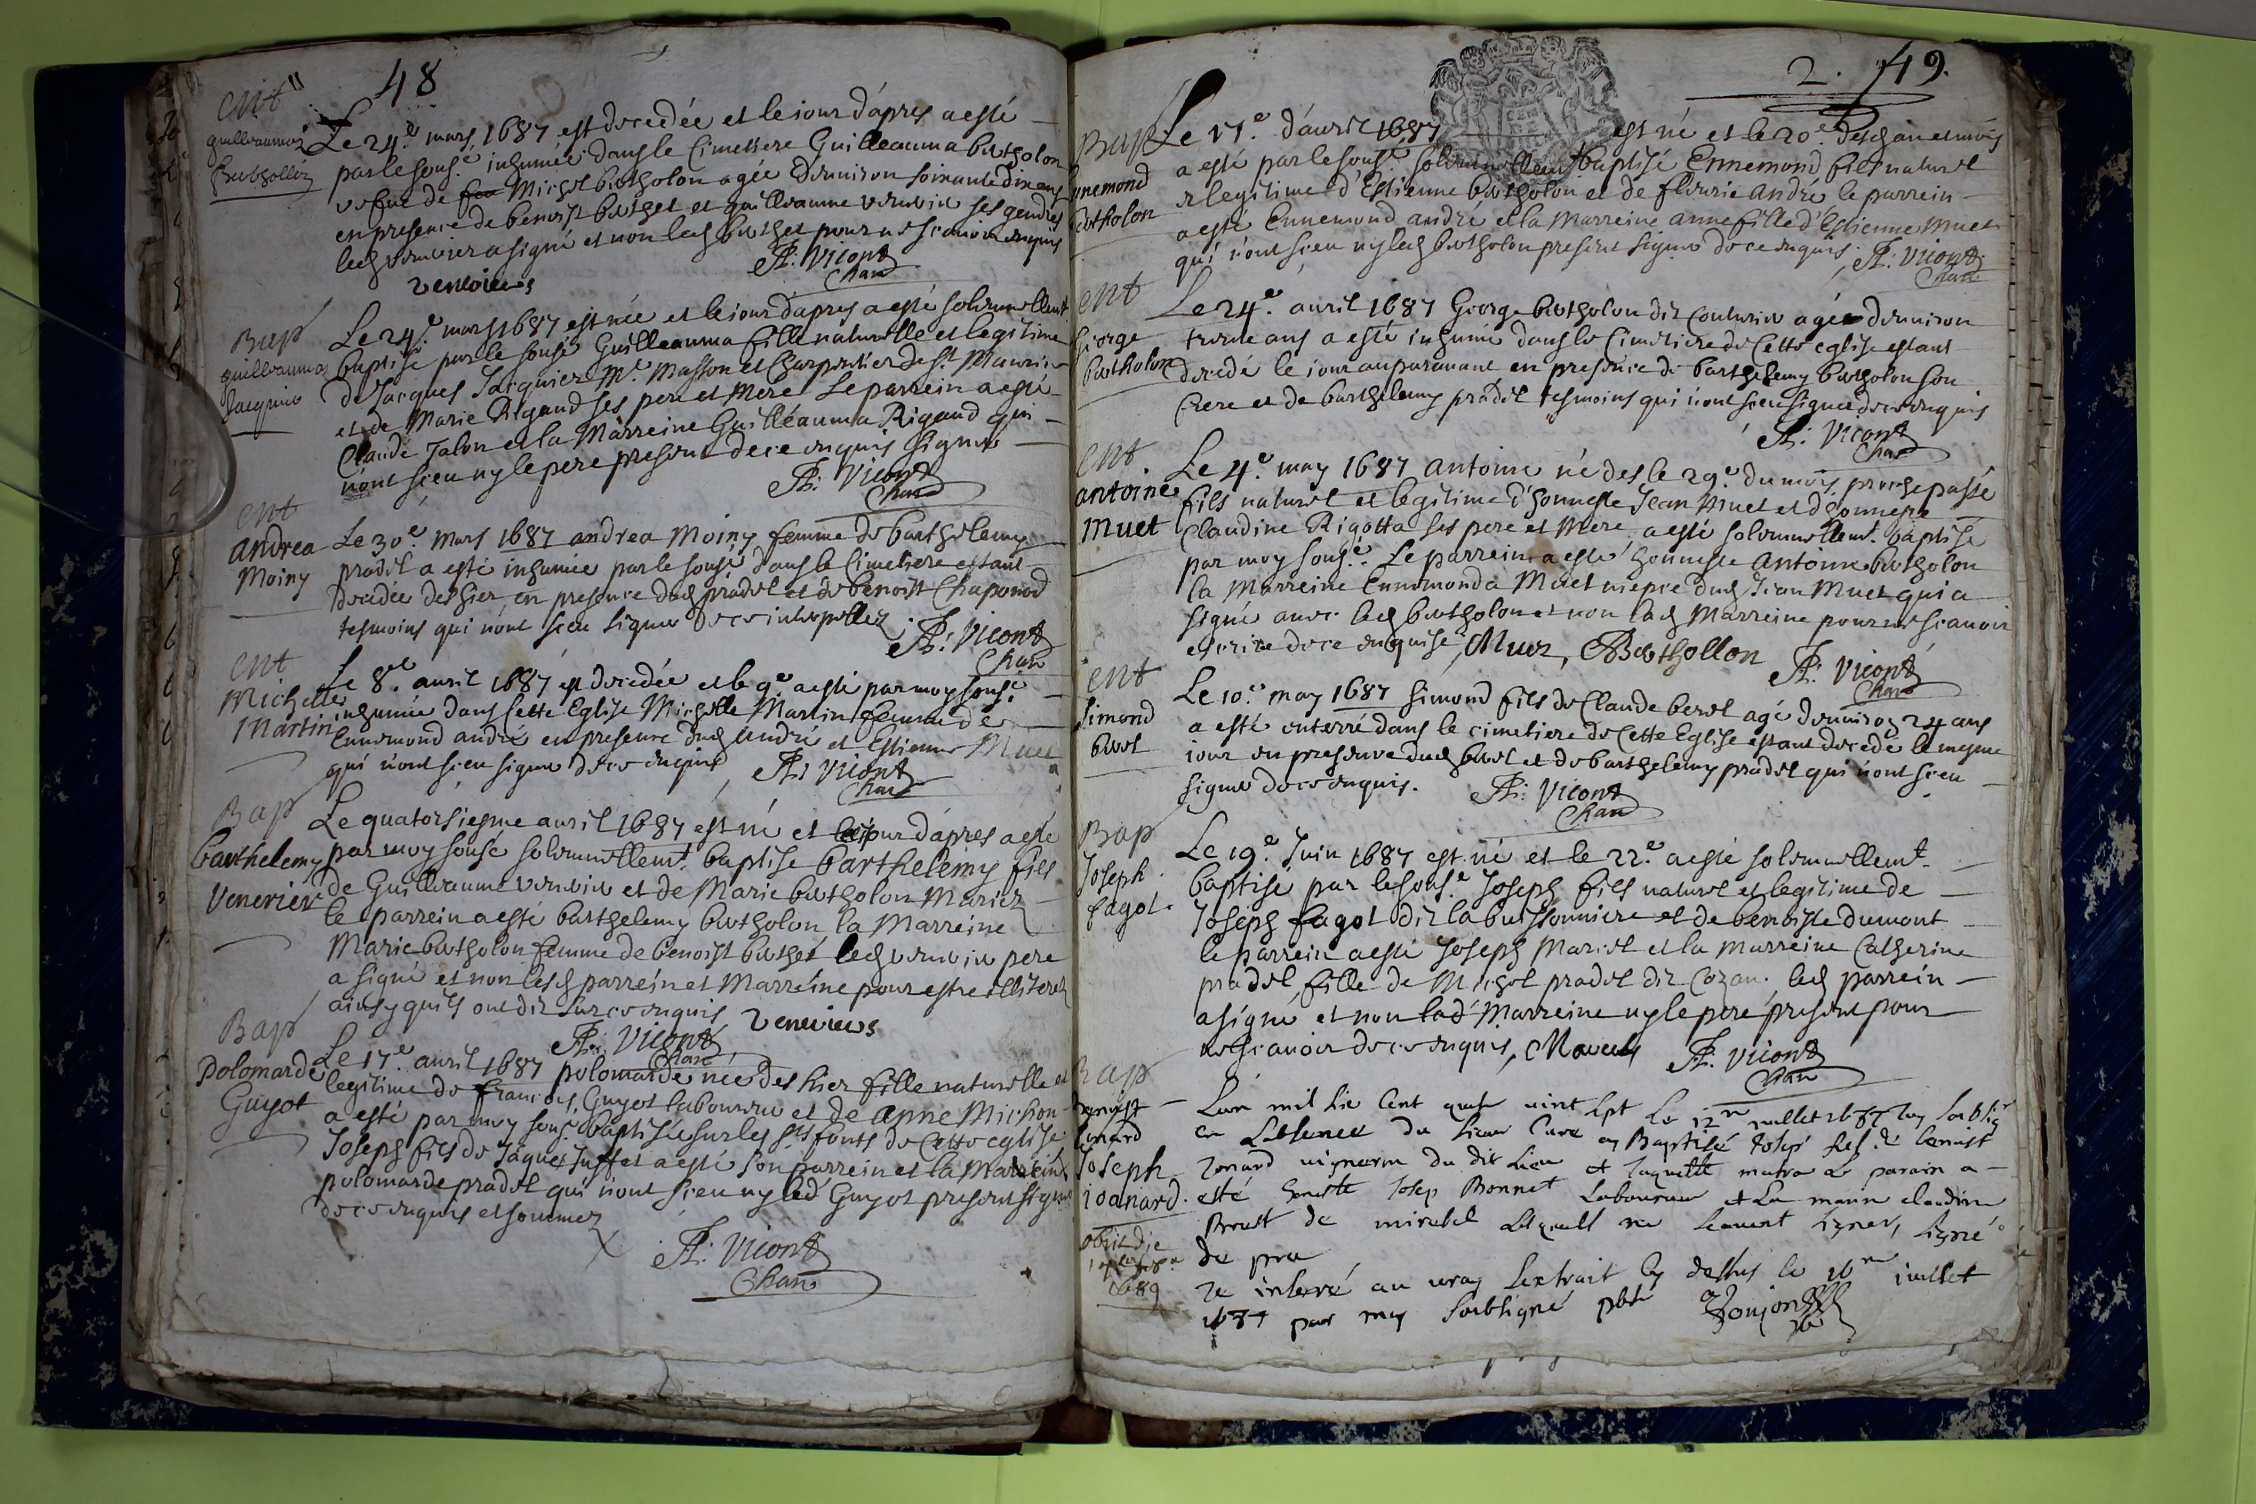 48
ent
guilleaumaz
Bertholon
Le 24.e mars 1687 est decedée et le iour d'apres a esté
par le sousé inhumée dans le Cimettiere Guilleauma bertholon
vefue de feu Michel bertholon agée denuiron soixante dix ans
en presence de benoist berthet et guilleaume venerier ses gendres
led venerier a signé et non led berthet pour ne scauoir enquis
veneriers
Bap
guilleauma
Jacquier
Le 24.e mars 1687 est née et le iour d'apres a esté solemnellemt
baptisé par le sousé Guilleauma fille naturelle et legitime
de Jacques Jacquier Me Masson et Charpentier de St Maurice
et de Marie Rigaud ses pere et mere Le parrein a esté
Claude Jalon et la Marreine Guilleauma Rigaud qui
n'ont sceu ny le pere present de ce enquis signer
ent
andrea
Moiny
Le 30.e Mars 1687 andrea Moiny femme de barthelemy
pradel a esté inhumée par le sousé dans le Cimetiere estant
decedée des hier, en presence dud pradel et de benoist Chaponod
tesmoins qui n'ont sceu signer de ce interpellez
ent
Michelle
Martin
Le 8.e auril 1687 est decedée et le 9.e a esté par moy sousé
inhumée dans Cette Eglise Michelle Martin femme de
Ennemond andré en presence dud André et Estienne Muet
qui n'ont sceu signer de ce enquis
Bap
barthelemy
Venerier
Le quatorsiesme auril 1687 est né et le iour d'apres a esté
par moy sousé solemnellemt. baptisé barthelemy fils
de Guilleaume venerier et de Marie bertholon Mariez
le parrein a esté barthelemy bertholon la Marreine
Marie bertholon femme de benoist berthet led venerier pere
a signé et non lesd parrein et Marreine pour estre illiterez
ainsy quils ont dit sur ce enquis
veneriers
Bap
polomarde
Guyot
Le 17.e auril 1687 polomarde née des hier fille naturelle et
legitime de francois Guyot laboureur et de Anne Michon
a esté par moy sousé baptisée sur les sts fonts de Cette eglise
Joseph fils de Jaques Juffet a esté son parrein et la Marreine
polomarde pradel qui n'ont sceu ny led Guyot present signer
de ce enquis et sommez
2. 49.
Bap
ennemond
bertholon
Le 17.e d'auril 1687 est né et le 20.e desd an et mois
a esté par le sousé solemnellemt baptisé Ennemond fils naturel
et legitime d'Estienne bertholon et de fleurie andré le parrein
a esté Ennemond andré et la Marreine anne fille d'Estienne Muet
qui n'ont sceu ny led bertholon present signer de ce enquis.
ent
George
bertholon
Le 24.e auril 1687 George bertholon dit Couturier agé denuiron
trente ans a esté inhumé dans le Cimetiere de Cette eglise estant
decedé le iour auparauant en presence de barthelemy bertholon son
frere et de barthelemy pradel tesmoins qui n'ont sceu signer de ce enquis
ent.
antoine
Muet
Le 4.e may 1687 antoine né des le 29.e du mois proche passé
fils naturel et legitime d'honneste Jean Muet et d'honneste
Claudine Rigotta ses pere et Mere a esté solemnellemt. baptisé
par moy sousé. Le parrein a esté honneste Antoine bertholon
la Marreine Ennemonda Muet niepce dud Jean Muet qui a
signé auec led bertholon et non lad Marreine pour ne scauoir
escrire de ce enquise, Muet, Berthollon
ent
Simond
berel
Le 10.e may 1687 Simond fils de Claude berel agé denuiron 24 ans
a esté enterré dans le cimetiere de Cette Eglise estant decedé le mesme
iour en presence dud berel et de barthelemy pradel qui n'ont sceu
signer de ce enquis.
Bap
Joseph
fagot
Le 19.e Juin 1687 est né et le 22.e a esté solemnellemt.
baptisé par le sousé Joseph fils naturel et legitime de
Joseph fagot dit la buissonniere et de benoiste dumont
le parrein a esté Joseph Marcel et la Marreine Catherine
pradel fille de Michel pradel dit Cozan. led parrein
a signé et non lad Marreine ny le pere present pour
ne scauoir de ce enquis,
Bap
Joseph
ioanard.
1689
Lan mil six Cent quatre vint sept le 12me iuillet
en Labsence du sieur Cure ay Baptisé Josep fils de benoist
Jonard vigneron du dit Lieu et Jaquette le parain a
esté honeste Josep Bonnet Laboureur et la marine claudine
de mirebel Lesquels ne scauent signer,
extrait cy dessus le 16me iuillet
1687 par moy soubsigné pbtre